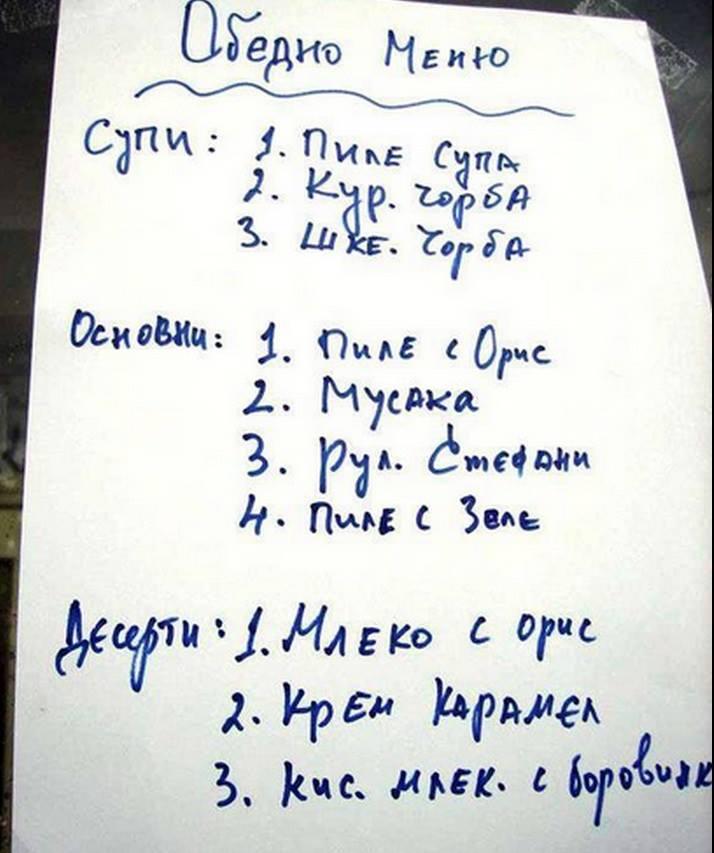 Обедно Меню
Супи: 1. Пиле Супа
2. Кур. Чорба
3. Шке. Чорба
Основни: 1. Пиле с Орис
2. Мусака
3. Рул. Стефани
4. Пиле с Зеле
Десерти: 1. Млеко с орис
2. Крем Карамел
3. Кис. млек. с боровинк